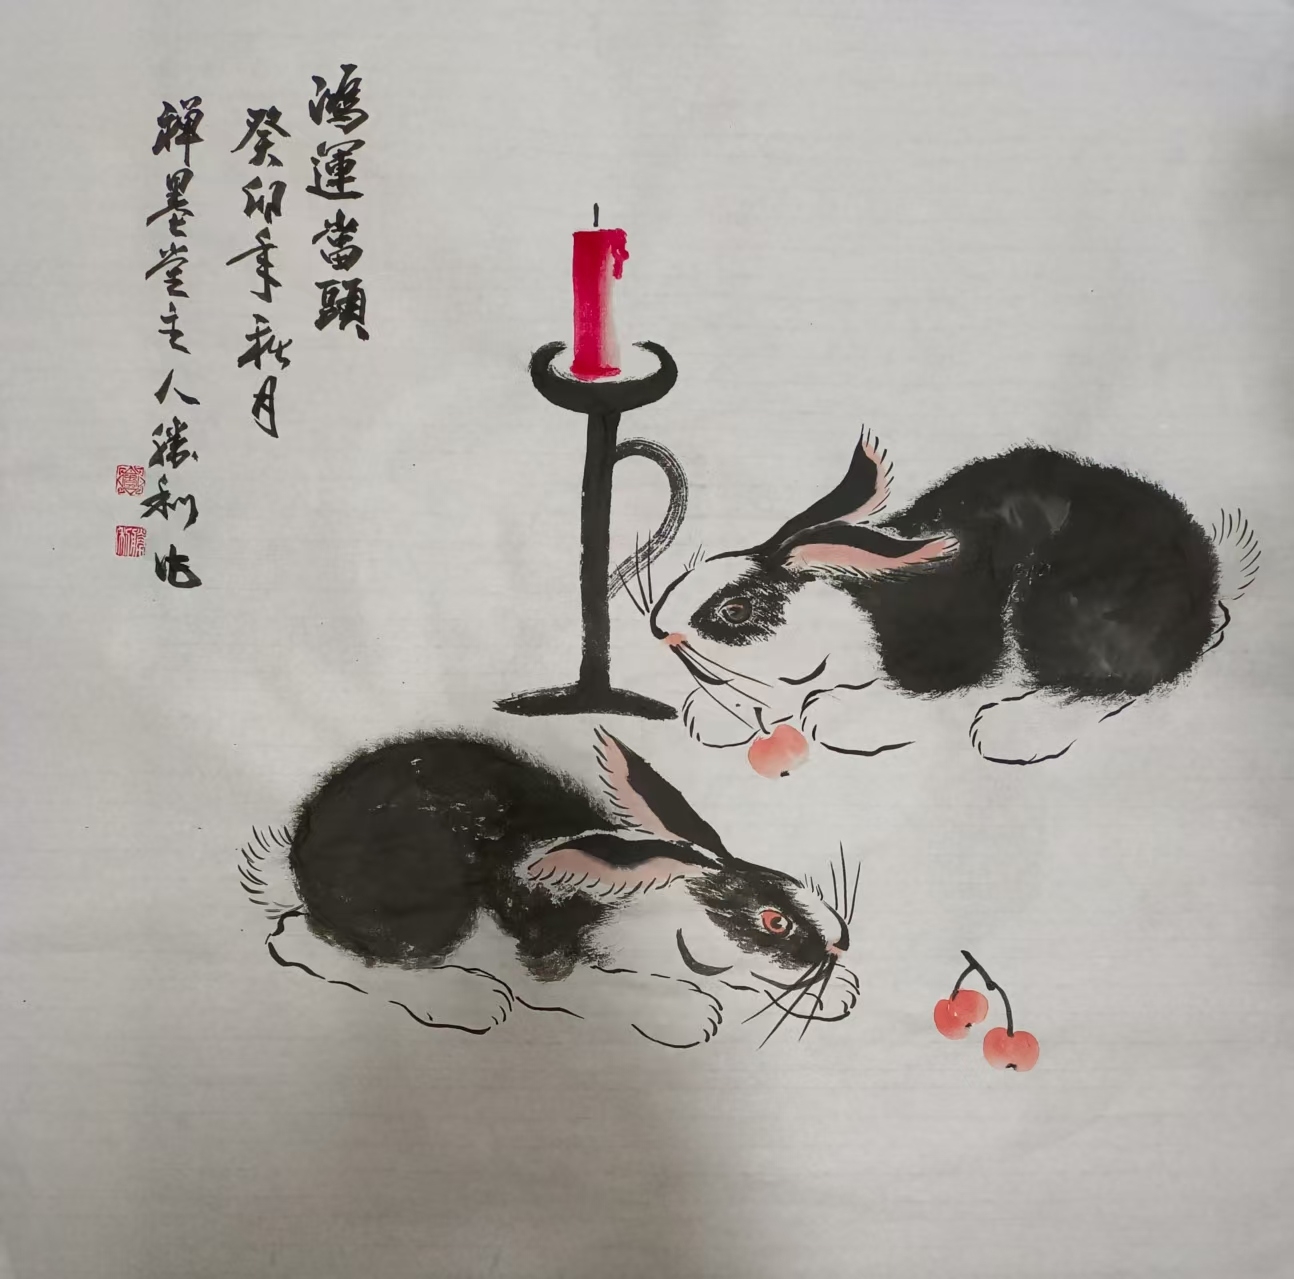 鴻運當頭
癸卯年秋月
禅墨堂主人勝利作